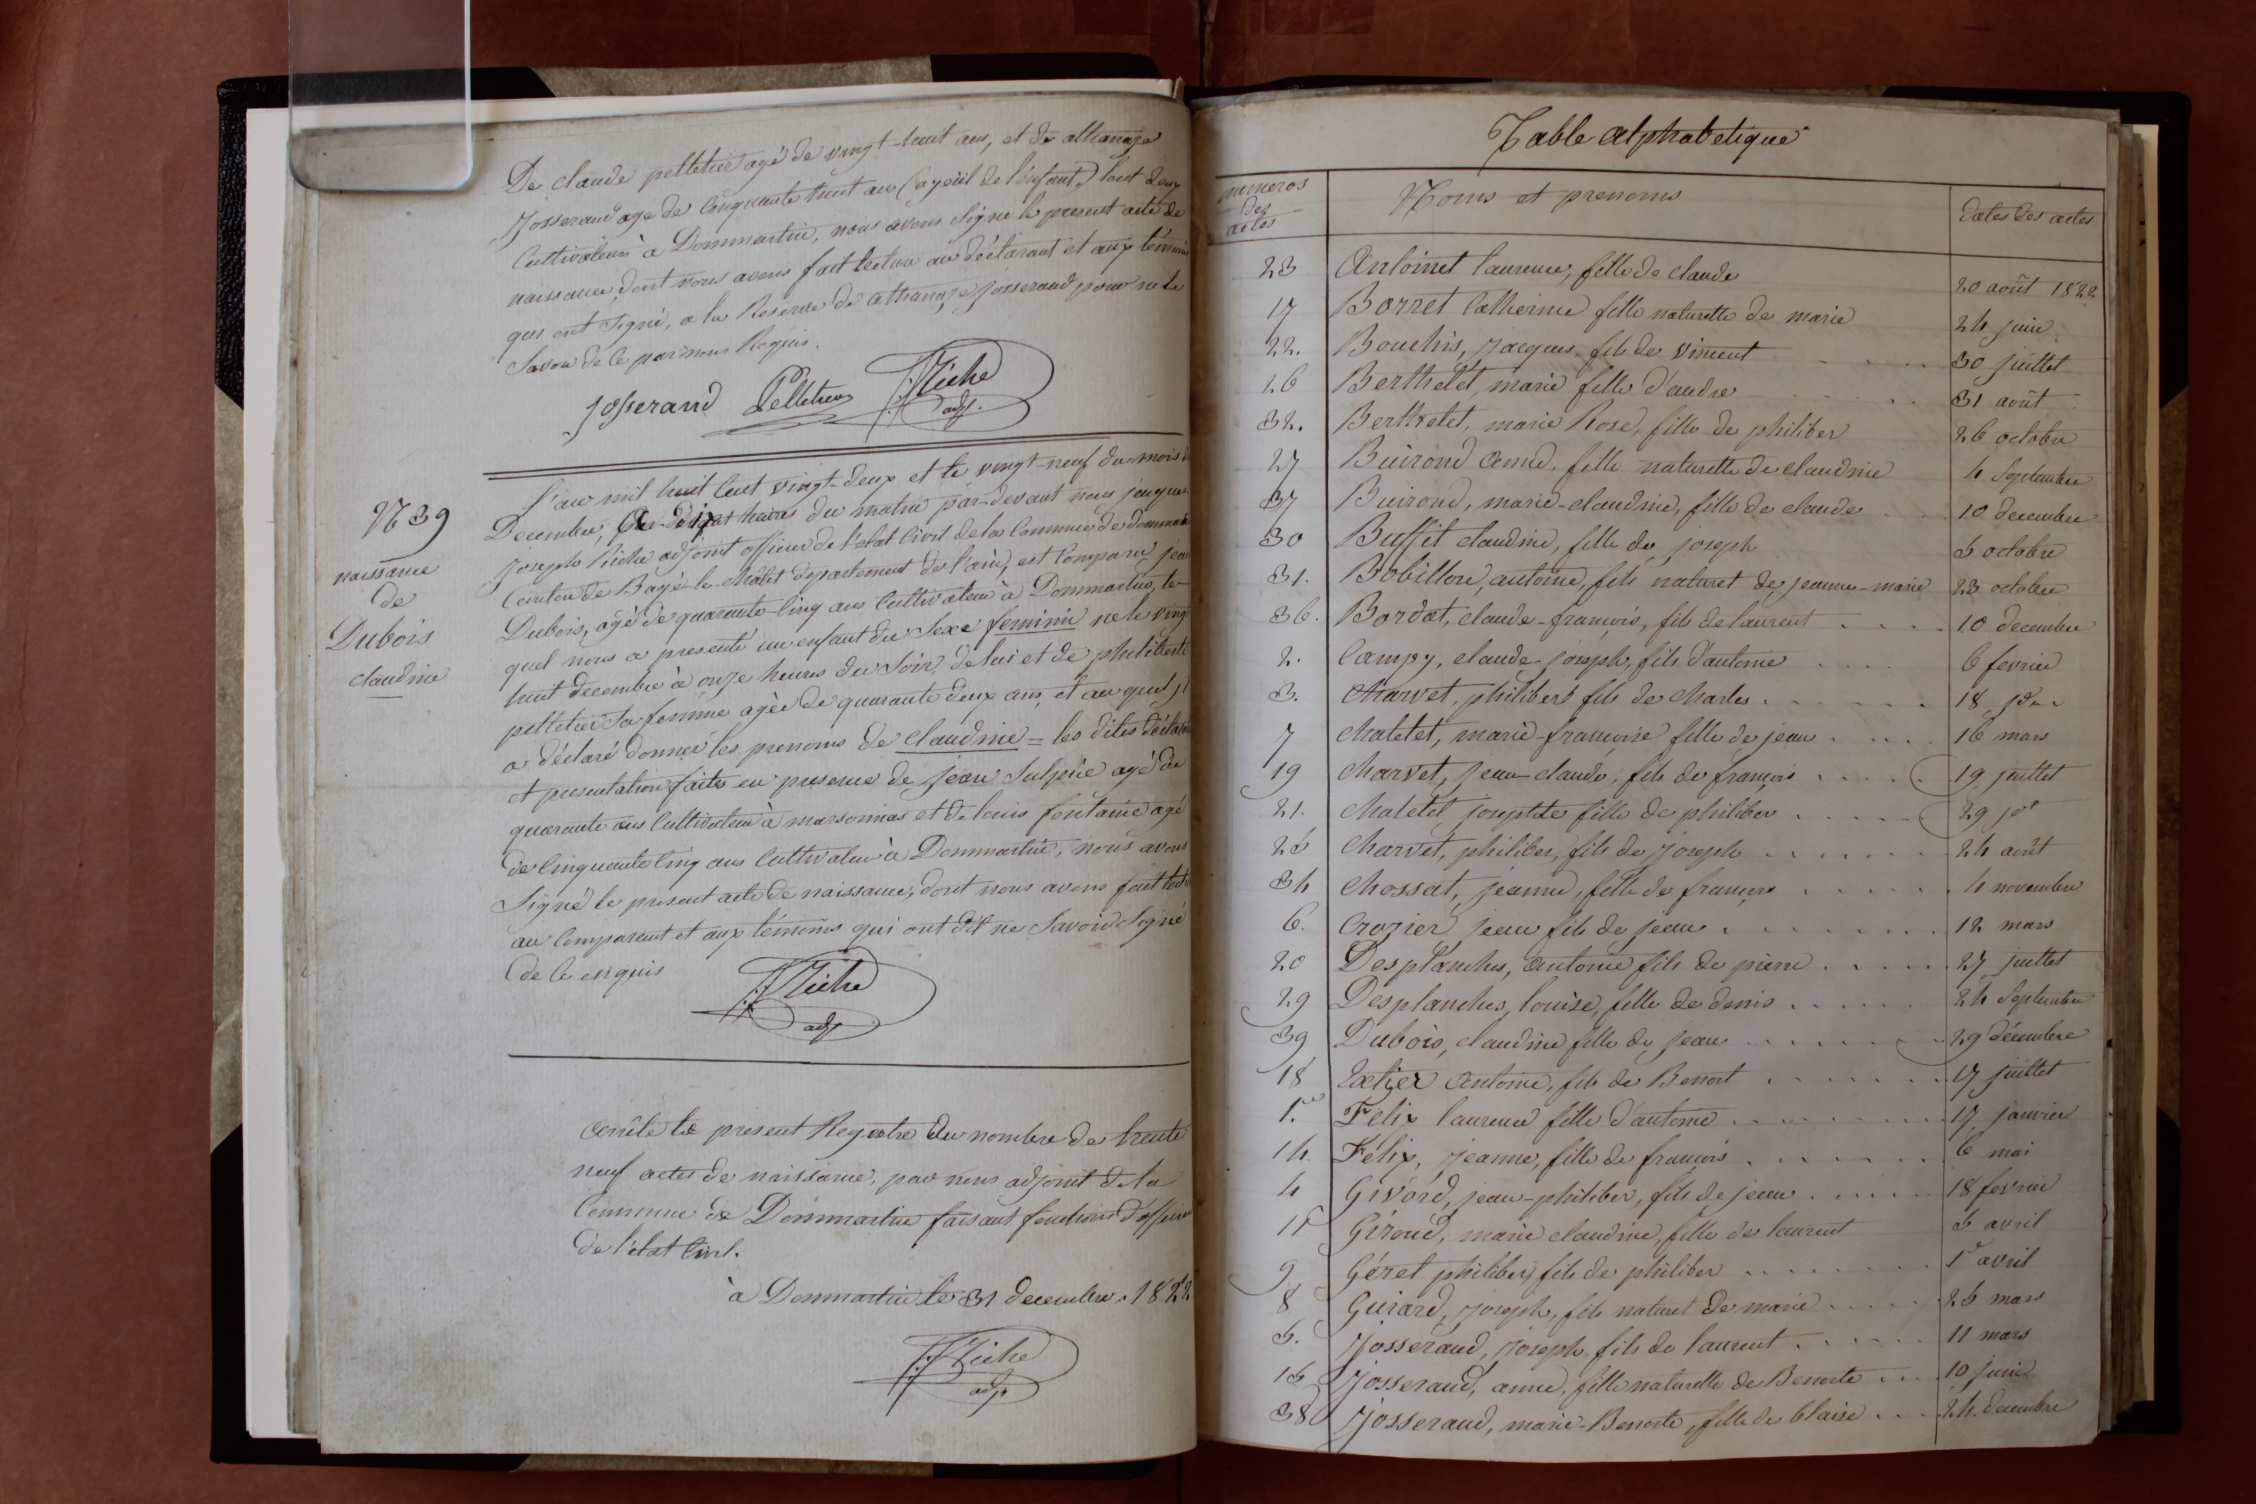 De claude pelletier agé de vingt-huit ans, et de athanaze
Josserand agé de Cinquante huit ans (ayeüil de l'enfant) tout deux
Cultivateurs à Dommartin, nous avons Signé le present acte de
naissance, dont nous avons fait lecture au déclarant et aux témoins
qui ont Signé, a la Reserve de athanaze josserand pour ne le
Savoir de ce par nous Requis.
Josserand Pelletier JJ Riche
adjt.
N 39
naissance
de
Dubois
claudine
l'an mil huit Cent vingt-deux et le vingt-neuf du mois de
Decembre, heures du matin par-devant nous jacques
joseph Riche adjoint officier de l'etat Civil de la Commune de dommartin
Canton de Bagé-le-châtel département de l'ain, est Comparu jean
Dubois, agé de quarante-Cinq ans Cultivateur à Dommartin, le-
quel nous a presenté un enfant du Sexe feminin né le vingt
huit decembre à onze heures du Soir de lui et de philiberte
pelletier Sa femme agée de quarante deux ans, et au quel jl
a déclaré donner les prenoms de claudine = les dites déclaration
et presentation faites en presence de jean Sulpice agé de
quarante ans Cultivateur à marsonnas et de louis fontaine agé
de Cinquante Cinq ans Cultivateur à Dommartin, nous avons
Signé le present acte de naissance, dont nous avons fait lecture
au Comparant et aux témoins qui ont dit ne Savoir Signé
de ce enquis
JJ Riche
adjt
arrêté le present Registre du nombre de trente
neuf actes de naissance, par nous adjoint de la
Commune de Dommartin faisant fonctions d'officier
de l'état Civil.
à Dommartin le 31 decembre 1822
JJ Riche
adjt
Table alphabetique
numeros des actes Noms et prenoms dates des actes
23 Antoinet laurence, fille de claude 20 août 1822
17 Borret Catherine fille naturelle de marie 24 juin
22. Bouchis, Jacques fils de vincent 30 juillet
26 Berthelet, marie fille d'andre 31 août
32. Berthelet, marie Rose, fille de philiber 26 octobre
27 Buirond anne. fille naturelle de claudine 4 Septembre
37 Buirond, marie-claudine, fille de claude 10 decembre
30 Buffit claudine, fille de joseph 5 octobre
31. Bobillon, antoine, fils naturel de jeanne-marie 23 octobre
36. Bordat, claude-françois, fils de laurent 10 decembre
2. Campy, claude-joseph, fils d'antoine 6 fevrier
3. Charvet, philibert fils de charles 18 jdem
7 Chatelet, marie-françoise fille de jean 16 mars
19 Charvet, Jean-claude, fils de françois 19 juillet
21. Chatelet josephte fille de philiber 29 jdt
25 Charvet, philiber, fils de Joseph 24 août
34 Chossat, jeanne, fille de françois 4 novembre
6. Crozier jean fils de jean 12 mars
20 Desplanches, antoine fils de pierre 27 juillet
29 Desplanches, louise, fille de denis 24 Septembre
39 Dubois, claudine fille de jean 29 décembre
18 antoine, fils de Benoit 17 juillet
1.er Felix laurence fille d'antoine 17 janvier
14. Félix, jeanne, fille de françois 6 mai
4 Givord, jean-philiber, fils de jean 18 fevrier
11 Géroud, marie claudine, fille de laurent 5 avril
9 Géret philiber, fils de philiber 1er avril
8 Guirard, Joseph, fils naturel de marie 25 mars
5. Josserand, Joseph fils de laurent 11 mars
15 Josserand, anne, fille naturelle de Benoite 10 juin
38 Josserand, marie-Benoite, fille de blaise 24. decembre